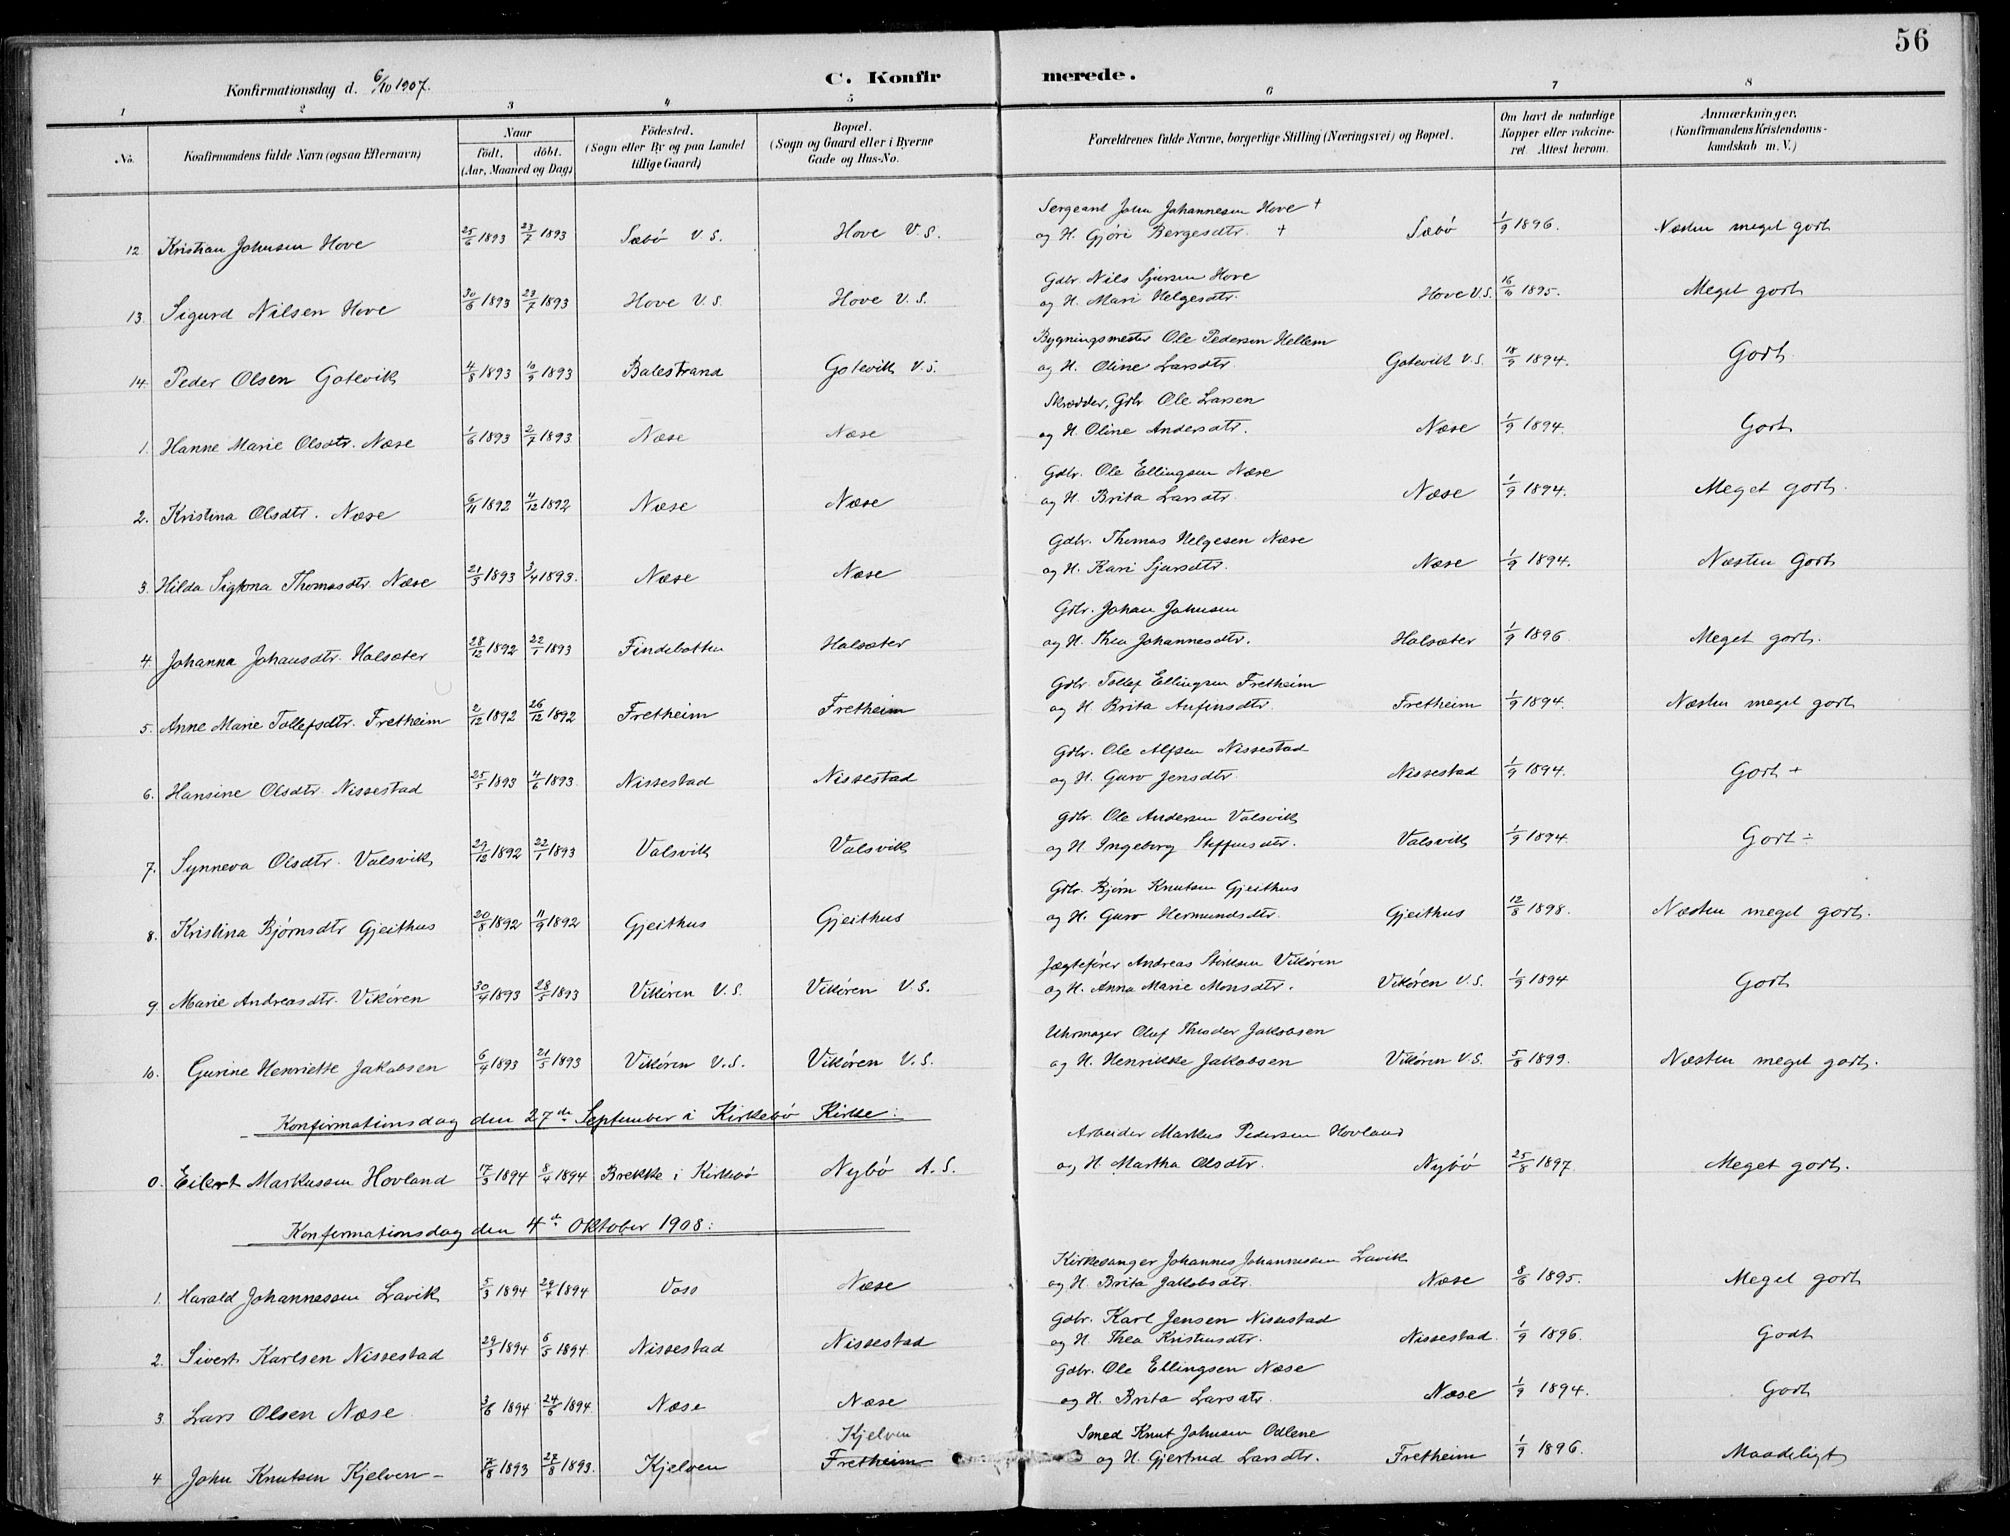 56
Konfirmationsdag d. 6/10 1907.
C. Konfirmerede.
1 2 3 4 5 6 7 8
No. Konfirmandens fulde Navn (ogsaa Efternavn) Naar født. døbt. (Aar, Maaned og Dag) Fødested. (Sogn eller By og paa Landet tillige Gaard) Bopæl. (Sogn og Gaard eller i Byerne Gade og Hus-No. Forældrenes fulde Navne, borgerlige Stilling (Næringsvei) og Bopæl. Om havt de naturlige Kopper eller vakcineret. Attest herom. Anmærkninger. (Konfirmandens Kristendomskundskab m. V.)
Sergeant John Johannesen Hove +
12 Kristian Johnsen Hove 25/6 1893 23/7 1893 Sæbø V.S. Hove V.S. og H. Gjøri Bergesdtr. + Sæbø 1/9 1896. Næsten meget godt
Gdbr Nils Sjursen Hove
13. Sigurd Nilsen Hove 30/6 1893 23/7 1893 Hove V.S. Hove V.S. og H. Mari Helgesdtr. Hove V.S. 16/6 1895. Meget godt
Bygningsmester Ole Pedersen Hellem
14. Peder Olsen Gotevik 4/8 1893 10/9 1893 Balestrand Gotevik V.S. og H. Oline Larsdtr. Gotevik V.S. 18/9 1894. Godt
Skrædder, Gdbr Ole Larsen
1. Hanne Marie Olsdtr. Næse 1/6 1893 2/7 1893 Næse Næse og H. Oline Andersdtr. Næse 1/9 1894. Godt
Gdbr. Ole Ellingsen Næse
2. Kristina Olsdtr. Næse 6/11 1892 4/12 1892 Næse Næse og H. Brita Larsdtr. Næse 1/9 1894. Meget godt.
Gdbr. Thomas Helgesen Næse
3. Hilda Sigtona Thomasdtr. Næse 21/3 1893 3/4 1893. Næse Næse og H. Kari Sjursdtr. Næse 1/9 1894. Næsten Godt
Gdbr. Johan Johnsen
4. Johanna Johansdtr. Halsæter 28/12 1892 22/1 1893 Findebotten Halsæter og H. Thea Johannesdtr. Halsæter 1/9 1896. Meget godt.
Gdbr. Tollef Ellingsen Fretheim
5. Anne Marie Tollefsdtr. Fretheim 2/12 1892 26/12 1892 Fretheim Fretheim og H Brita Anfinsdtr. Fretheim 1/9 1894. Næsten meget godt
Gdbr. Ole Alfsen Nissestad
6. Hansine Olsdtr. Nissestad 25/5 1893 4/6 1893. Nissestad Nissestad og H. Guro Jensdtr. Nissestad 1/9 1894. Godt +
Gdbr. Ole Andersen Valsvik
7. Synneva Olsdtr. Valsvik 29/12 1892 22/1 1893 Valsvik Valsvik og H. Ingeborg Steffensdtr. Valsvik 1/9 1894. Godt ÷
Gdbr. Bjørn Knutsen Gjeithus
8. Kristina Bjørnsdtr Gjeithus 20/8 1892 11/9 1892 Gjeithus Gjeithus og H. Guro Hermundsdtr. Gjeithus 12/8 1898. Næsten meget godt.
Jægtefører Andreas Vikøren
9. Marie Andreasdtr. Vikøren 30/4 1893 28/5 1893 Vikøren V.S. Vikøren V.S. og H. Anna Marie Monsdtr. Vikøren V.S. 1/9 1894 Godt
Uhrmager Oluf Theodor Jakobsen
10. Gurine Henriette Jakobsen 6/4 1893 21/5 1893 Vikøren V.S. Vikøren V.S. og H. Henrikke Jakobsen Vikøren V.S. 5/8 1899. Næsten meget godt.
Konfirmationsdag den 27de September i Kirkebø Kirke:
Arbeider Markus Pedersen Hovland
0. Eilert Markussen Hovland 17/3 1894 8/4 1894 Brekke i Kirkebø Nybø A.S. og H. Martha Olsdtr. Nybø 25/8 1897. Meget godt.
Konfirmationsdag den 4de Oktober 1908:
Kirkesanger Johannes Johannessen Lavik
1. Harald Johannessen Lavik 5/3 1894 29/4 1894 Voss Næse og H. Brita Jakobsdtr. Næse 8/6 1895. Meget godt
Gdbr. Karl Jensen Nissestad
2. Sivert Karlsen Nissestad 29/3 1894 6/5 1894. Nissestad Nissestad og H. Thea Kristensdtr. Nissestad. 1/9 1896. Godt
Gdbr. Ole Ellingsen Næse
3. Lars Olsen Næse 3/6 1894 24/6 1894. Næse Næse og H. Brita Larsdtr. Næse 1/9 1894. Godt
Kjelven Smed Knut Johnsen Odlene
4 John Knutsen Kjelven 7/8 1893 27/8 1893. Kjelven Fretheim og H. Gjertrud Larsdtr. Fretheim 1/9 1896. Maadeligt